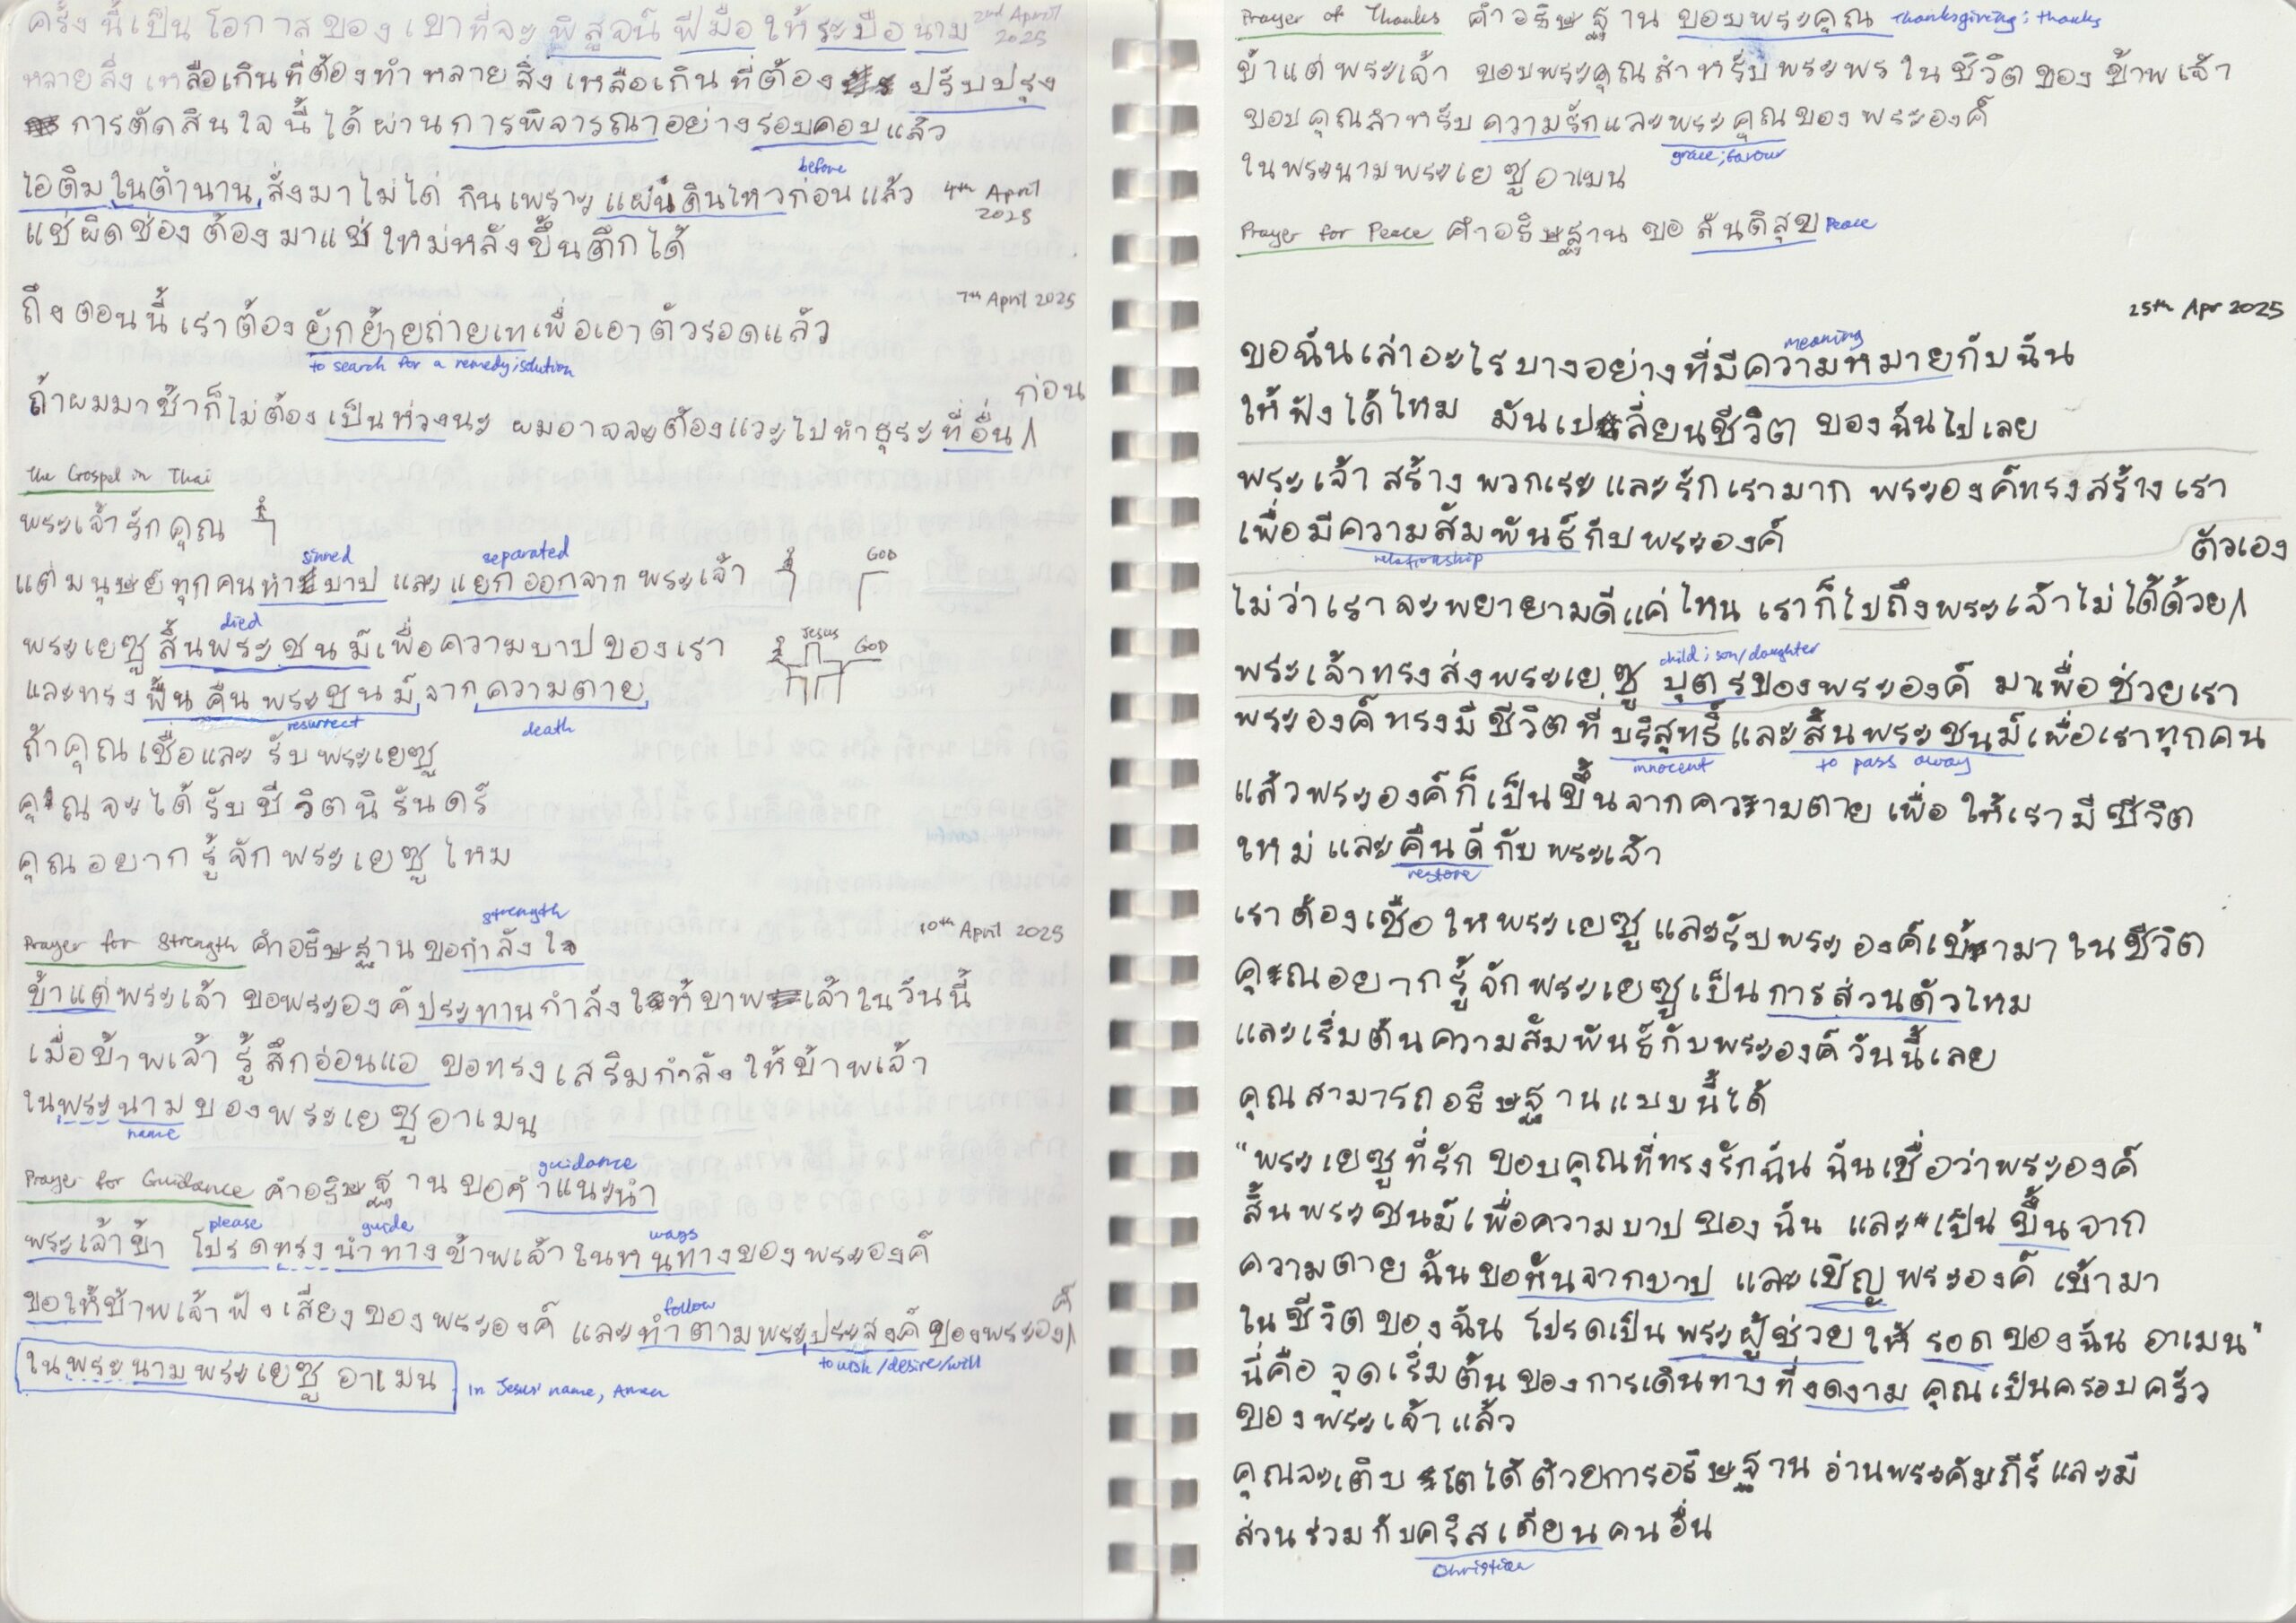 ครั้งนี้เป็นโอกาสของเขาที่จะพิสูจน์ฝีมือให้ระบือนาม 2nd April 2025
หลายสิ่งเหลือเกินที่ต้องทำ หลายสิ่งเหลือเกินที่ต้อง ปรับปรุง
การตัดสินใจนี้ได้ผ่านการพิจารณาอย่างรอบคอบแล้ว
before
ไอติมในตำนาน สั่งมาไม่ได้ กินเพราะแผ่นดินไหวก่อนแล้ว 4th April 2025
แช่ผิดช่องต้องมาแช่ใหม่หลังขึ้นตึกได้
7th April 2025
ถึงตอนนี้เราต้องยักย้ายถ่ายเทเพื่อเอาตัวรอดแล้ว
to search for a remedy; solution
ถ้าผมมาช้าก็ไม่ต้องเป็นห่วงนะ ผมอาจจะต้องแวะไปทำธุระที่อื่น ก่อน
The Gospel in Thai
พระเจ้ารักคุณ
sinned separated
แต่มนุษย์ทุกคนทำบาป และแยกออกจากพระเจ้า GOD
died
พระเยซูสิ้นพระชนม์เพื่อความบาปของเรา Jesus GOD
และทรงฟื้นคืนพระชนม์จากความตาย
resurrect death
ถ้าคุณเชื่อและรับพระเยซู
คุณจะได้รับชีวิตนิรันดร์
คุณอยากรู้จักพระเยซูไหม
strength
Prayer for Strength คำอธิษฐานขอกำลังใจ 10th April 2025
ข้าแต่พระเจ้า ขอพระองค์ประทานกำลังให้ขาพเจ้าในวันนี้
เมื่อข้าพเจ้ารู้สึกอ่อนแอ ขอทรงเสริมกำลังให้ข้าพเจ้า
ในพระนามของพระเยซูอาเมน
name
guidance
Prayer for Guidance คำอธิษฐานขอคำแนะนำ
please guide ways
พระเจ้าข้า โปรดทรงนำทางข้าพเจ้าในหนทางของพระองค์
follow
ขอให้ข้าพเจ้าฟังเสียงของพระองค์ และทำตามพระประสงค์ของพระองค์
to wish/desire/will
ในพระนามพระเยซู อาเมน In Jesus' name, Amen
Prayer of Thanks คำอธิษฐานขอบพระคุณ Thanksgiving; thanks
ข้าแต่พระเจ้า ขอบพระคุณสำหรับพระพรในชีวิตของข้าพเจ้า
ขอบคุณสำหรับความรักและพระคุณของพระองค์
grace; favour
ในพระนามพระเยซูอาเมน
Prayer for Peace คำอธิษฐานขอสันติสุข Peace
25th Apr 2025
meaning
ขอฉันเล่าอะไรบางอย่างที่มีความหมายกับฉัน
ให้ฟังได้ไหม มันเปลี่ยนชีวิตของฉันไปเลย
พระเจ้าสร้างพวกเระและรักเรามาก พระองค์ทรงสร้างเรา
เพื่อมีความสัมพันธ์กับพระองค์
relationship
ไม่ว่าเราจะพยายามดีแค่ไหน เราก็ไปถึงพระเจ้าไม่ได้ด้วย ตัวเอง
child; son/daughter
พระเจ้าทรงส่งพระเยซู บุตรของพระองค์ มาเพื่อช่วยเรา
พระองค์ทรงมีชีวิตที่บริสุทธิ์และสิ้นพระชนม์เพื่อเราทุกคน
innocent to pass away
แล้วพระองค์ก็เป็นขึ้นจากความตาย เพื่อให้เรามีชีวิต
ใหม่และคืนดีกับพระเจ้า
restore
เราต้องเชื่อให้พระเยซูและรับพระองค์เข้ามาในชีวิต
คุณอยากรู้จักพระเยซูเป็นการส่วนตัวไหม
และเริ่มต้นความสัมพันธ์กับพระองค์วันนี้เลย
คุณสามารถอธิษฐานแบบนี้ได้
"พระเยซูที่รัก ขอบคุณที่ทรงรักฉัน ฉันเชื่อว่าพระองค์
สิ้นพระชนม์เพื่อความบาปของฉัน และเป็นขึ้นจาก
ความตาย ฉันขอหันจากบาป และเชิญพระองค์เข้ามา
ในชีวิตของฉัน โปรดเป็นพระผู้ช่วยให้รอดของฉัน อาเมน"
นี่คือจุดเริ่มต้นของการเดินทางที่งดงาม คุณเป็นครอบครัว
ของพระเจ้าแล้ว
คุณจะเติบโตได้ด้วยการอธิษฐาน อ่านพระคัมภีร์และมี
ส่วนร่วมกับคริสเตียนคนอื่น
Christian